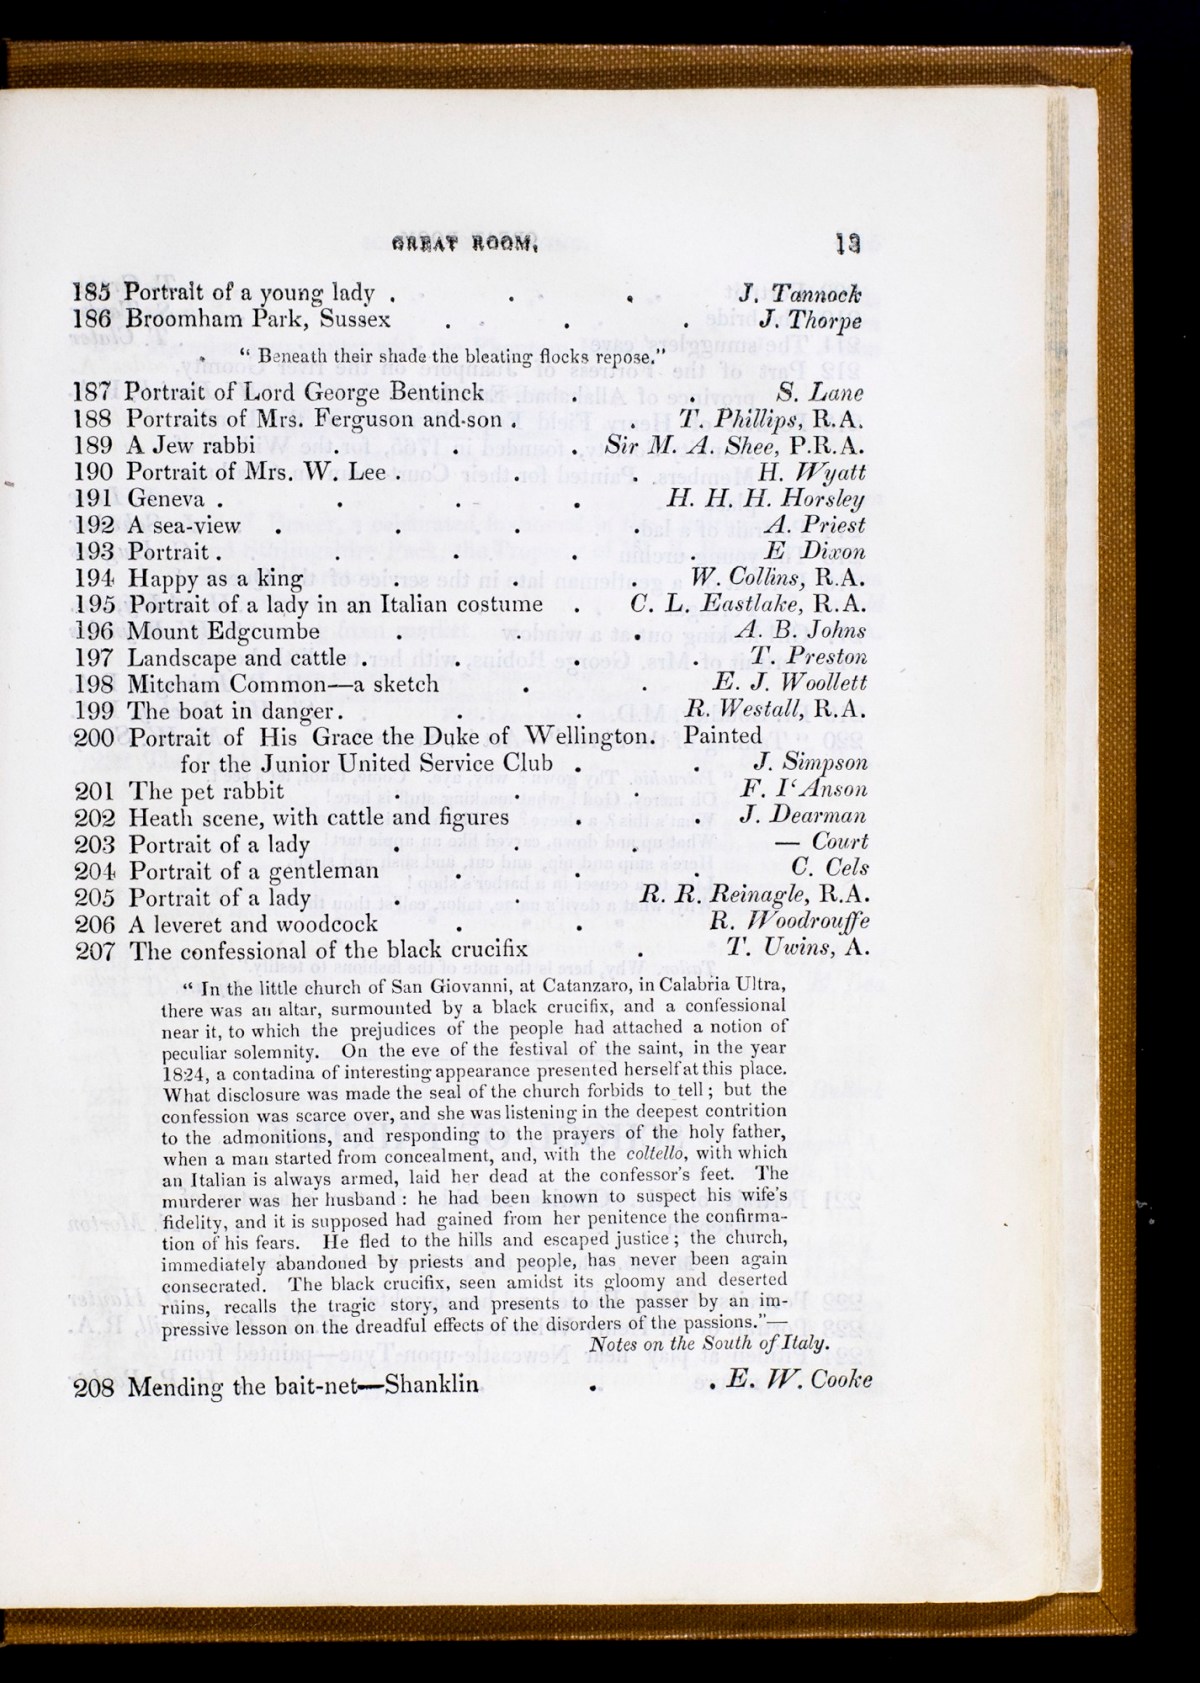 GREAT ROOM, 13
185 Portrait of a young lady . . . J. Tannock
186 Broomham Park, Sussex . . . J. Thorpe
“ Beneath their shade the bleating flocks repose.”
187 Portrait of Lord George Bentinck . . S. Lane
188 Portraits of Mrs. Ferguson and-son . . T. Phillips, R.A.
189 A Jew rabbi . . . Sir M. A. Shee, P.R.A.
190 Portrait of Mrs. W. Lee . . . H. Wyatt
191 Geneva . . . . H. H. H. Horsley
192 A sea-view . . . . A. Priest
193 Portrait . . . . . E. Dixon
194 Happy as a king . . . W. Collins, R.A.
195 Portrait of a lady in an Italian costume . C. L. Eastlake, R.A.
196 Mount Edgcumbe . . . A. B. Johns
197 Landscape and cattle . . . . T. Preston
198 Mitcham Common—a sketch . . E. J. Woollett
199 The boat in danger . . . R. Westall, R.A.
200 Portrait of His Grace the Duke of Wellington. Painted
for the Junior United Service Club . . J. Simpson
201 The pet rabbit . . . F. I‘Anson
202 Heath scene, with cattle and figures . . J. Dearman
203 Portrait of a lady . . . — Court
204 Portrait of a gentleman . . . C. Cels
205 Portrait of a lady . . R. R. Reinagle, R.A.
206 A leveret and woodcock . . R. Woodrouffe
207 The confessional of the black crucifix . T. Uwins, A.
“ In the little church of San Giovanni, at Catanzaro, in Calabria Ultra,
there was an altar, surmounted by a black crucifix, and a confessional
near it, to which the prejudices of the people had attached a notion of
peculiar solemnity. On the eve of the festival of the saint, in the year
1824, a contadina of interesting appearance presented herself at this place.
What disclosure was made the seal of the church forbids to tell ; but the
confession was scarce over, and she was listening in the deepest contrition
to the admonitions, and responding to the prayers of the holy father,
when a man started from concealment, and, with the coltello, with which
an Italian is always armed, laid her dead at the confessor's feet. The
murderer was her husband : he had been known to suspect his wife's
fidelity, and it is supposed had gained from her penitence the confirma-
tion of his fears. He fled to the hills and escaped justice ; the church,
immediately abandoned by priests and people, has never been again
consecrated. The black crucifix, seen amidst its gloomy and deserted
ruins, recalls the tragic story, and presents to the passer by an im-
pressive lesson on the dreadful effects of the disorders of the passions.”—
Notes on the South of Italy.
208 Mending the bait-net—Shanklin . . E. W. Cooke